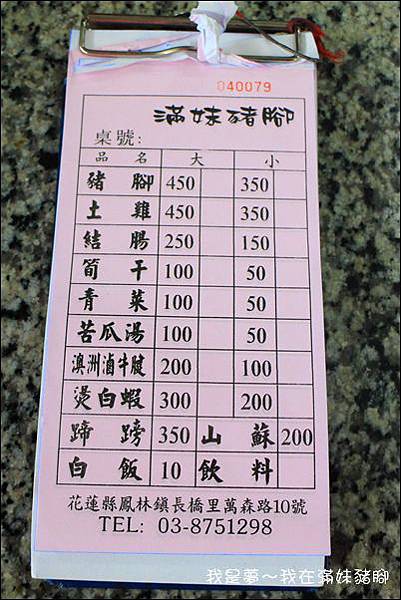 040079
滿妹豬腳
桌號:
品名 大 小
豬腳 450 350
土雞 450 350
結腸 250 150
筍干 100 50
青菜 100 50
苦瓜湯 100 50
澳洲滷牛腱 200 100
燙白蝦 300 200
蹄膀 350 山蘇 200
白飯 10 飲料
花蓮縣鳳林鎮長橋里萬森路10號
TEL: 03-8751298
我是夢～我在滿妹豬腳